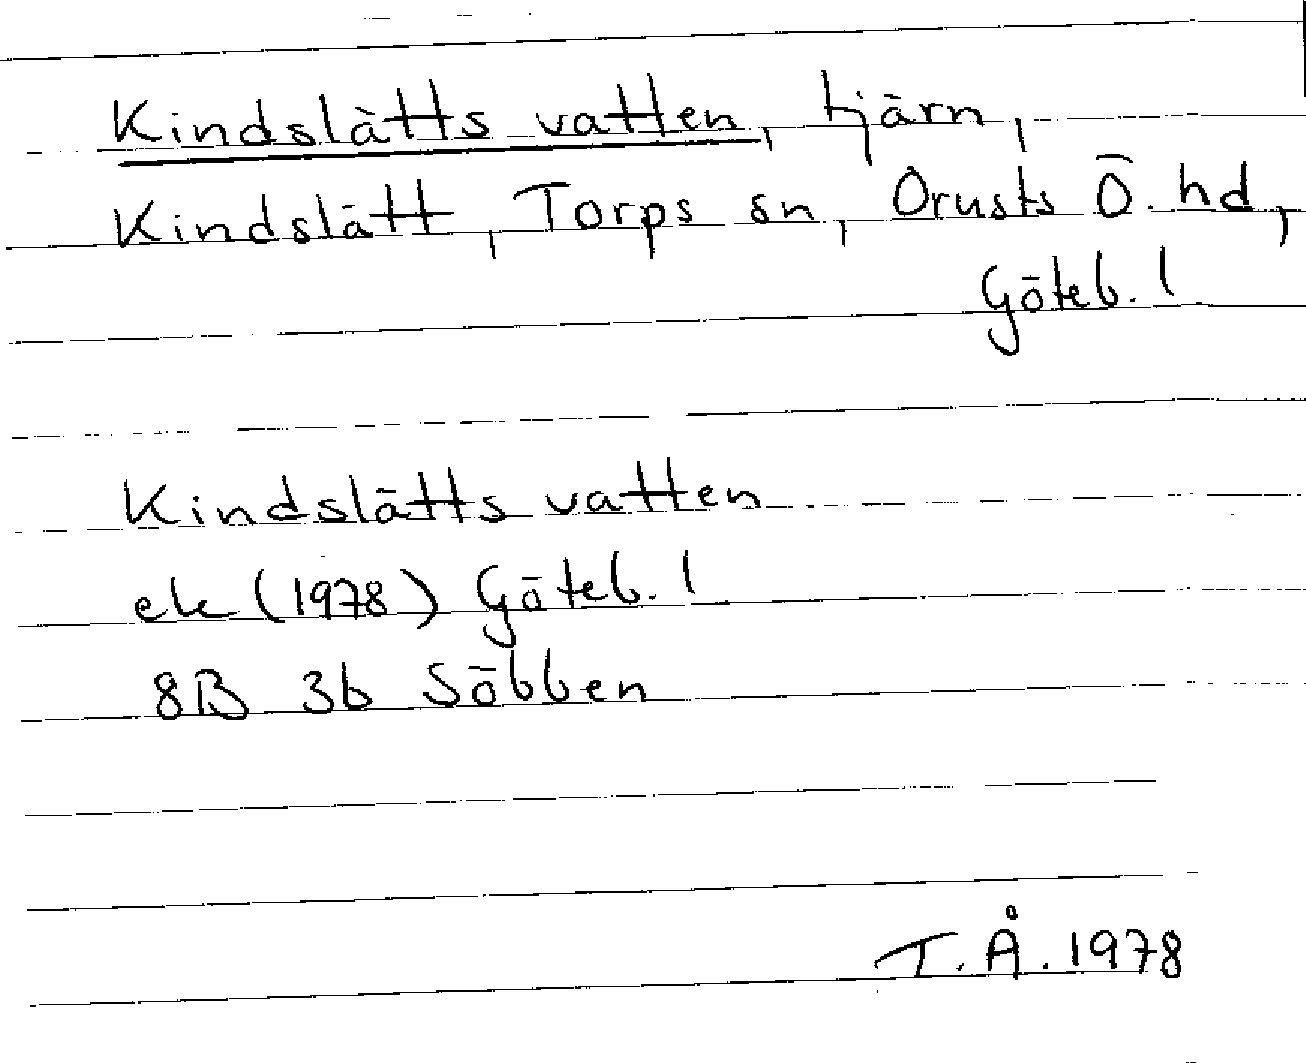 Kindslätts vatten, tjärn,
Kindslätt, Torps sn, Orusts Ö. hd,
Göteb. l
Kindslätts vatten
ek (1978) Göteb. l
8B 3b Söbben
T. Å. 1978